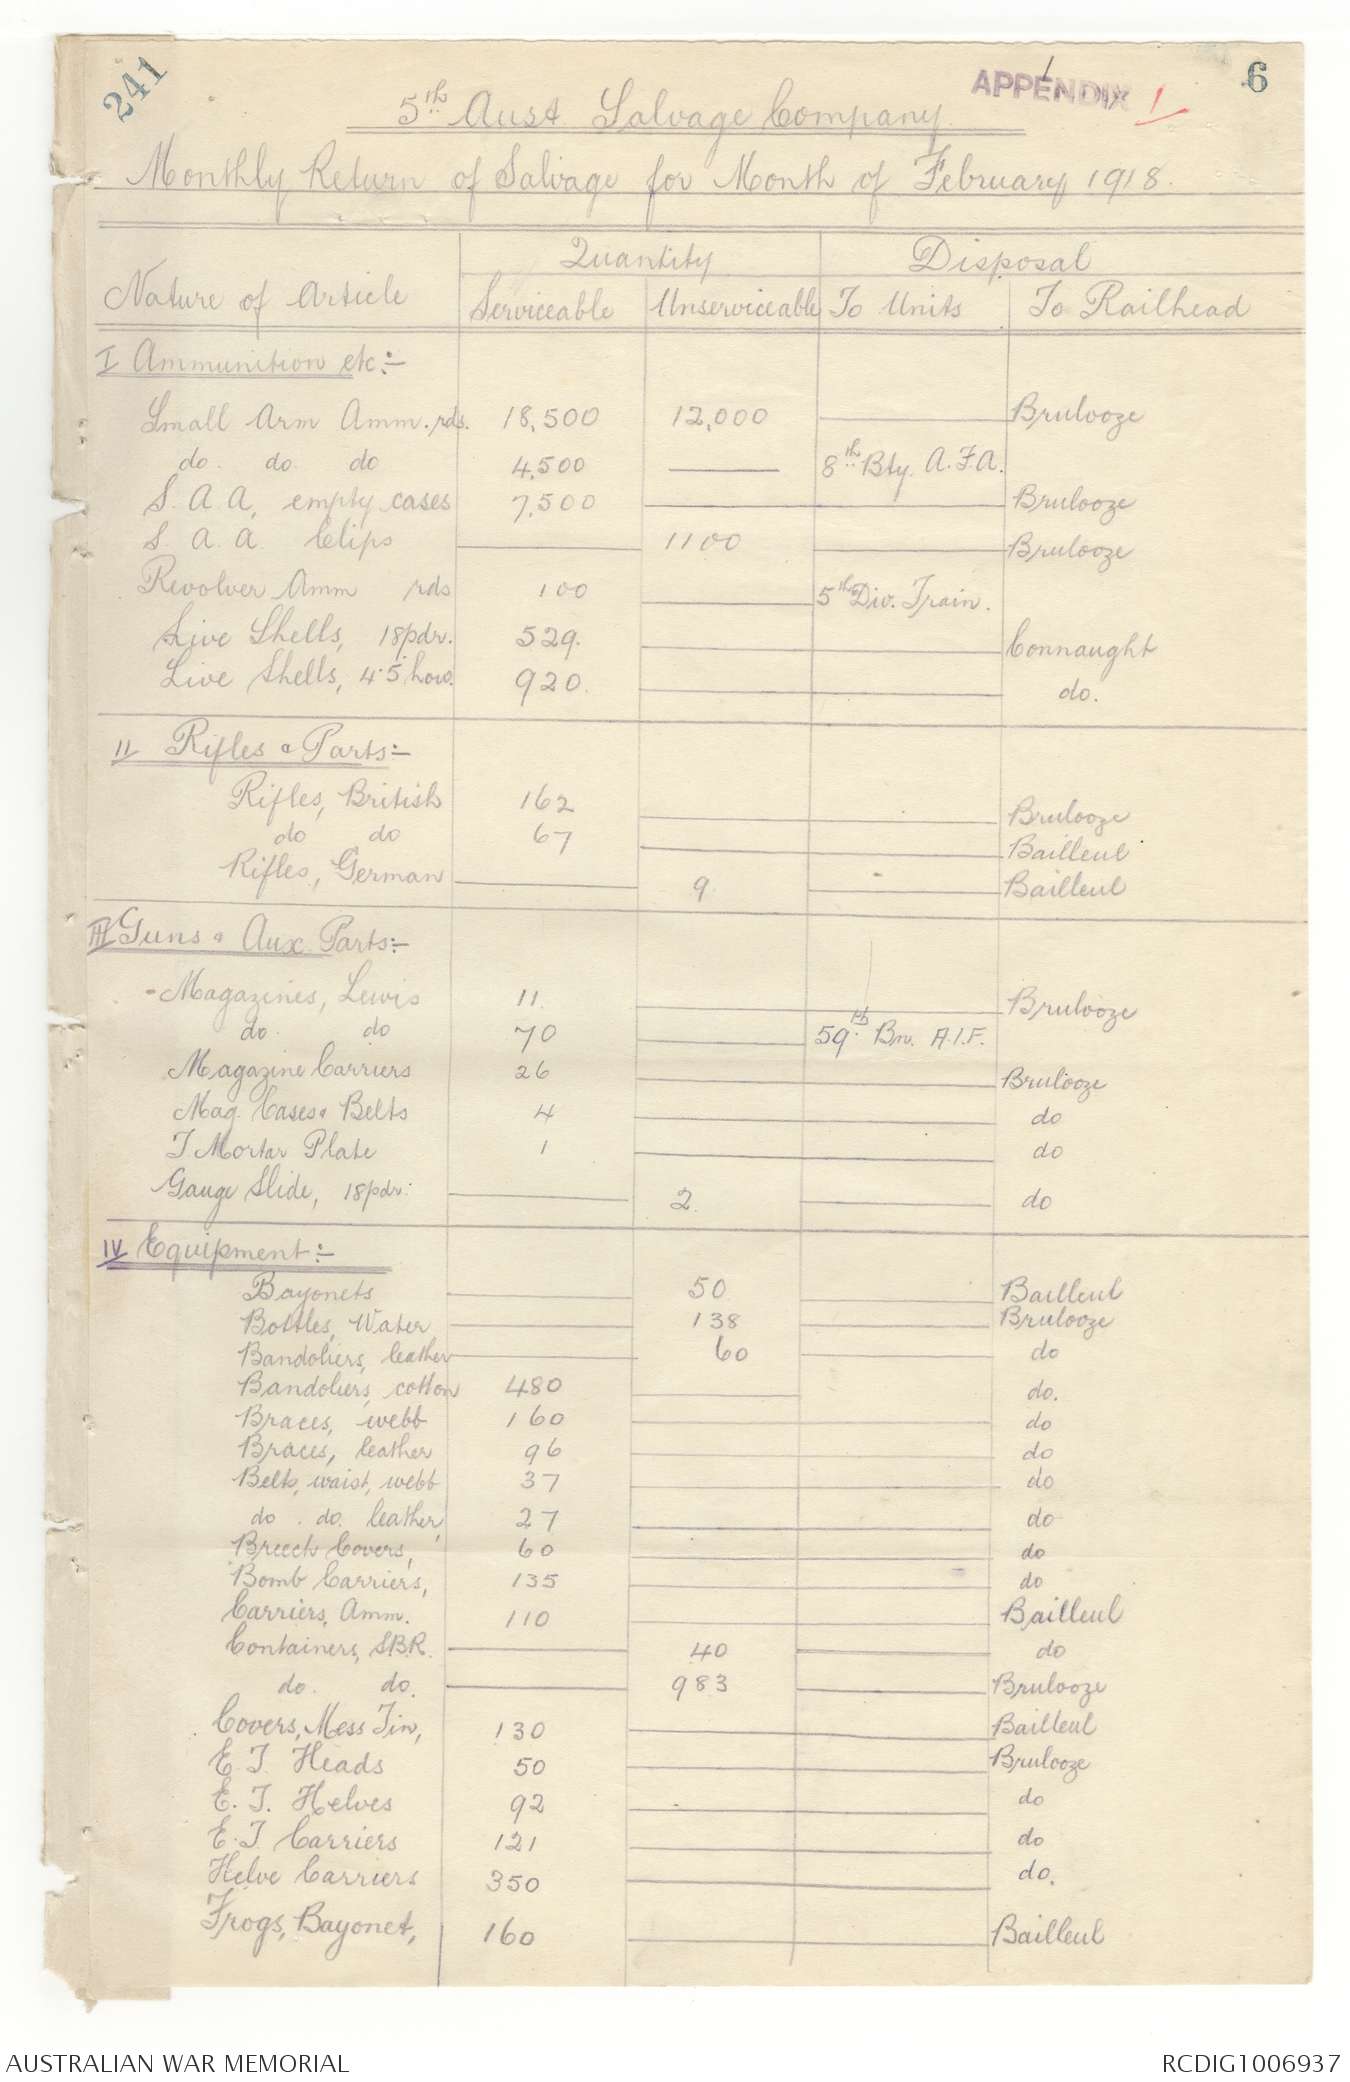 241
APPENDIX 1
6
5th Aust Salvage Company
Monthly Return of Salvage for Month of February 1918.
Quantity Disposal
Nature of Article Serviceable Unserviceable To Units To Railhead
I Ammunition etc:-
Small Arm Amm. rds. 18,500 12,000 Brulooze
do. do. do 4,500 8th Bty. A.F.A.
S. A. A, empty cases 7,500 Brulooze
S. A. A. Clips 1100 Brulooze
Revolver Amm rds 100 5th Div. Train.
Live Shells, 18pdr. 529. Connaught
Live Shells, 4.5 how. 920. do.
II Rifles & Parts:-
Rifles, British 162 Brulooze
do do 67 Bailleul
Rifles, German 9. Bailleul
III Guns & Aux. Parts:-
Magazines, Lewis 11. Brulooze
do. do 70 59th Bn. A.I.F.
Magazine Carriers 26 Brulooze
Mag. Cases & Belts 4 do
T Mortar Plate 1 do
Gauge Slide, 18pdr. 2. do
IV Equipment:-
Bayonets 50 Bailleul
Bottles, Water 138 Brulooze
Bandoliers, leather 60 do
Bandoliers, cotton 480 do.
Braces, webb 160 do
Braces, leather 96 do
Belts, waist, webb 37 do
do. do. leather, 27 do
Breech Covers, 60 do
Bomb Carriers, 135 do
Carriers, Amm. 110 Bailleul
Containers, SBR. 40 do
do. do. 983 Brulooze
Covers, Mess Tin, 130 Bailleul
E. T. Heads 50 Brulooze
E. T. Helves 92 do
E. T Carriers 121 do
Helve Carriers 350 do.
Frogs, Bayonet, 160 Bailleul
AUSTRALIAN WAR MEMORIAL RCDIG1006937